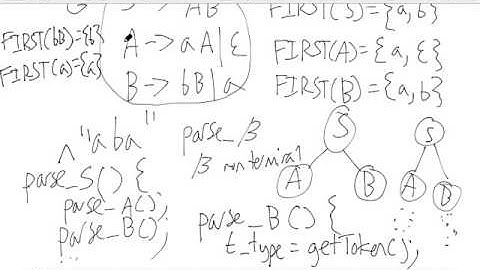 G S -> AB
FIRST(S) = {a,b}
FIRST(bB) = {b}
A -> aA | ε
FIRST(A) = {a, ε}
FIRST(a) = {a}
B -> bB | a
FIRST(B) = {a,b}
^ "aba"
parse_β
β nonterminal
S
A
B
S
A
B
parse_S() {
parse_A();
parse_B();
parse_B() {
t_type = getToken();